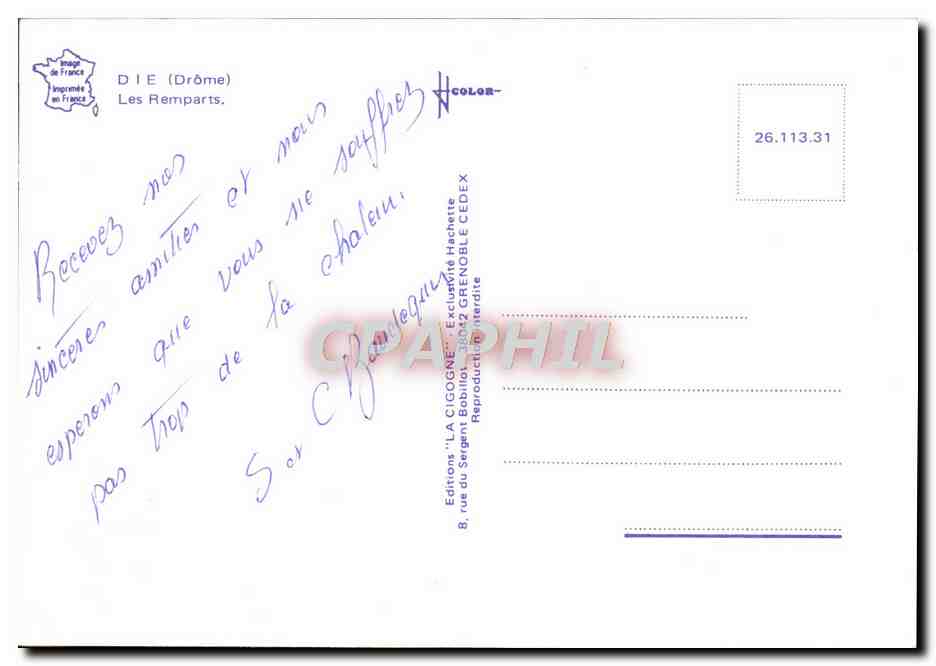 Image
de France
Imprimée
en France
DIE (Drôme)
Les Remparts.
COLOR
26.113.31
Recevez nos
sincères amitiés et nous
esperons que vous ne souffrez
pas trop de la chaleur.
S et C
Editions "LA CIGOGNE" - Exclusivité Hachette
8, rue du Sergent Bobillot, 38042 GRENOBLE CEDEX
Reproduction interdite
CPAPHIL